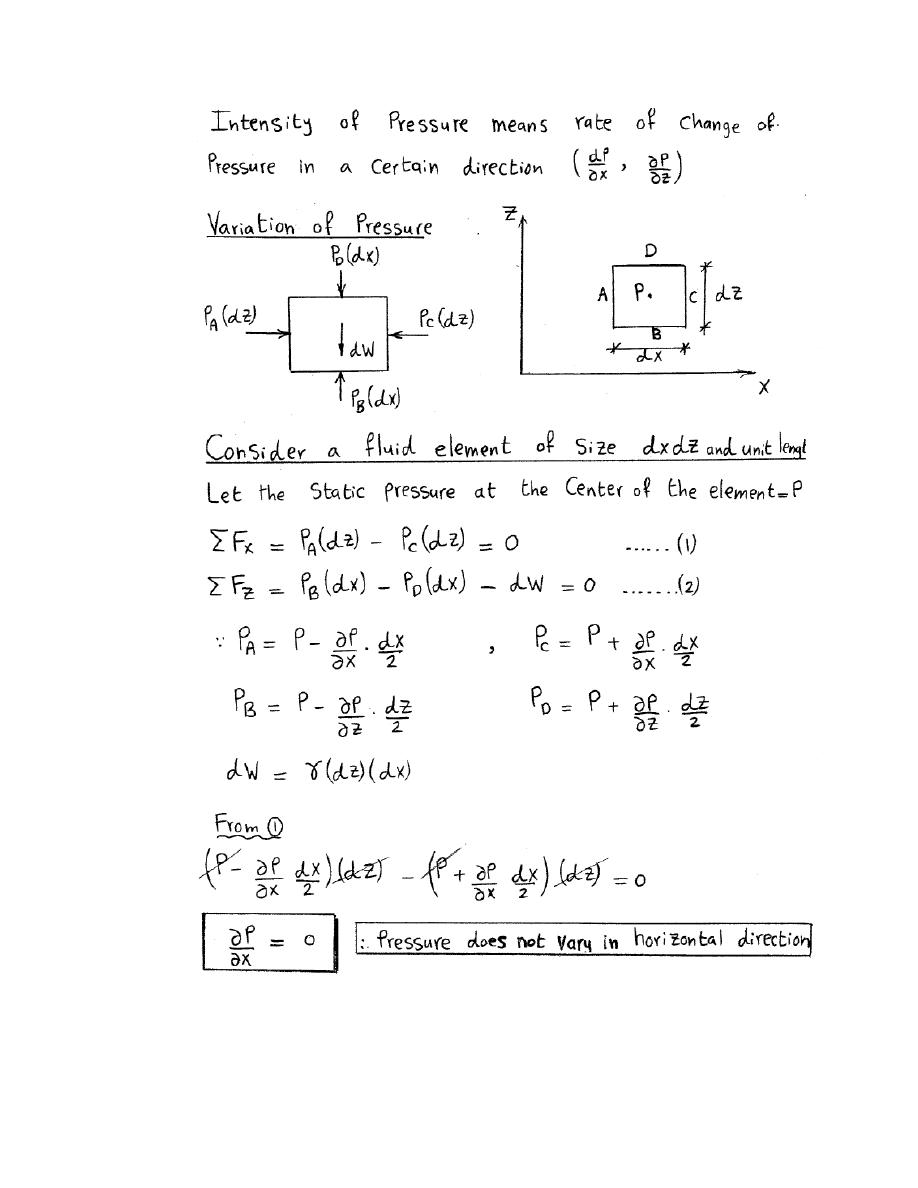 Intensity of Pressure means rate of Change of.
Pressure in a Certain direction (dP/∂x , ∂P/∂z)
Variation of Pressure
P_D(dx)
P_A(dz)
P_C(dz)
dW
P_B(dx)
Z
D
A P. C dz
B
dx
X
Consider a fluid element of Size dxdz and unit lengt
Let the Static Pressure at the Center of the element=P
ΣFx = P_A(dz) - P_C(dz) = 0 ......(1)
ΣFz = P_B(dx) - P_D(dx) - dW = 0 .......(2)
∵ P_A = P - ∂P/∂x . dx/2 , P_C = P + ∂P/∂x . dx/2
P_B = P - ∂P/∂z . dz/2 P_D = P + ∂P/∂z . dz/2
dW = γ(dz)(dx)
From ①
(P - ∂P/∂x dx/2)(dz) - (P + ∂P/∂x dx/2)(dz) = 0
∂P/∂x = 0 ∴ Pressure does not vary in horizontal direction